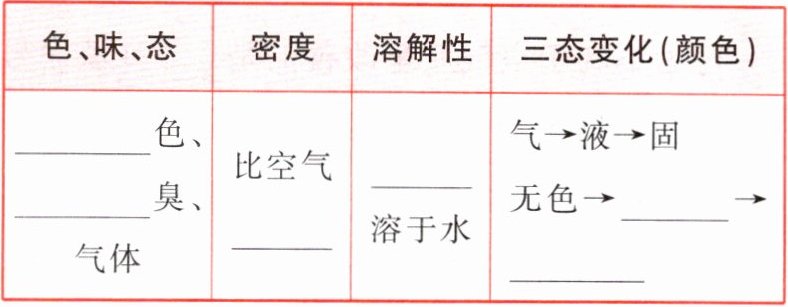 色、味、态 密度 溶解性 三态变化(颜色)
______色、
______臭、
气体
比空气
______
______
溶于水
气→液→固
无色→______→
______